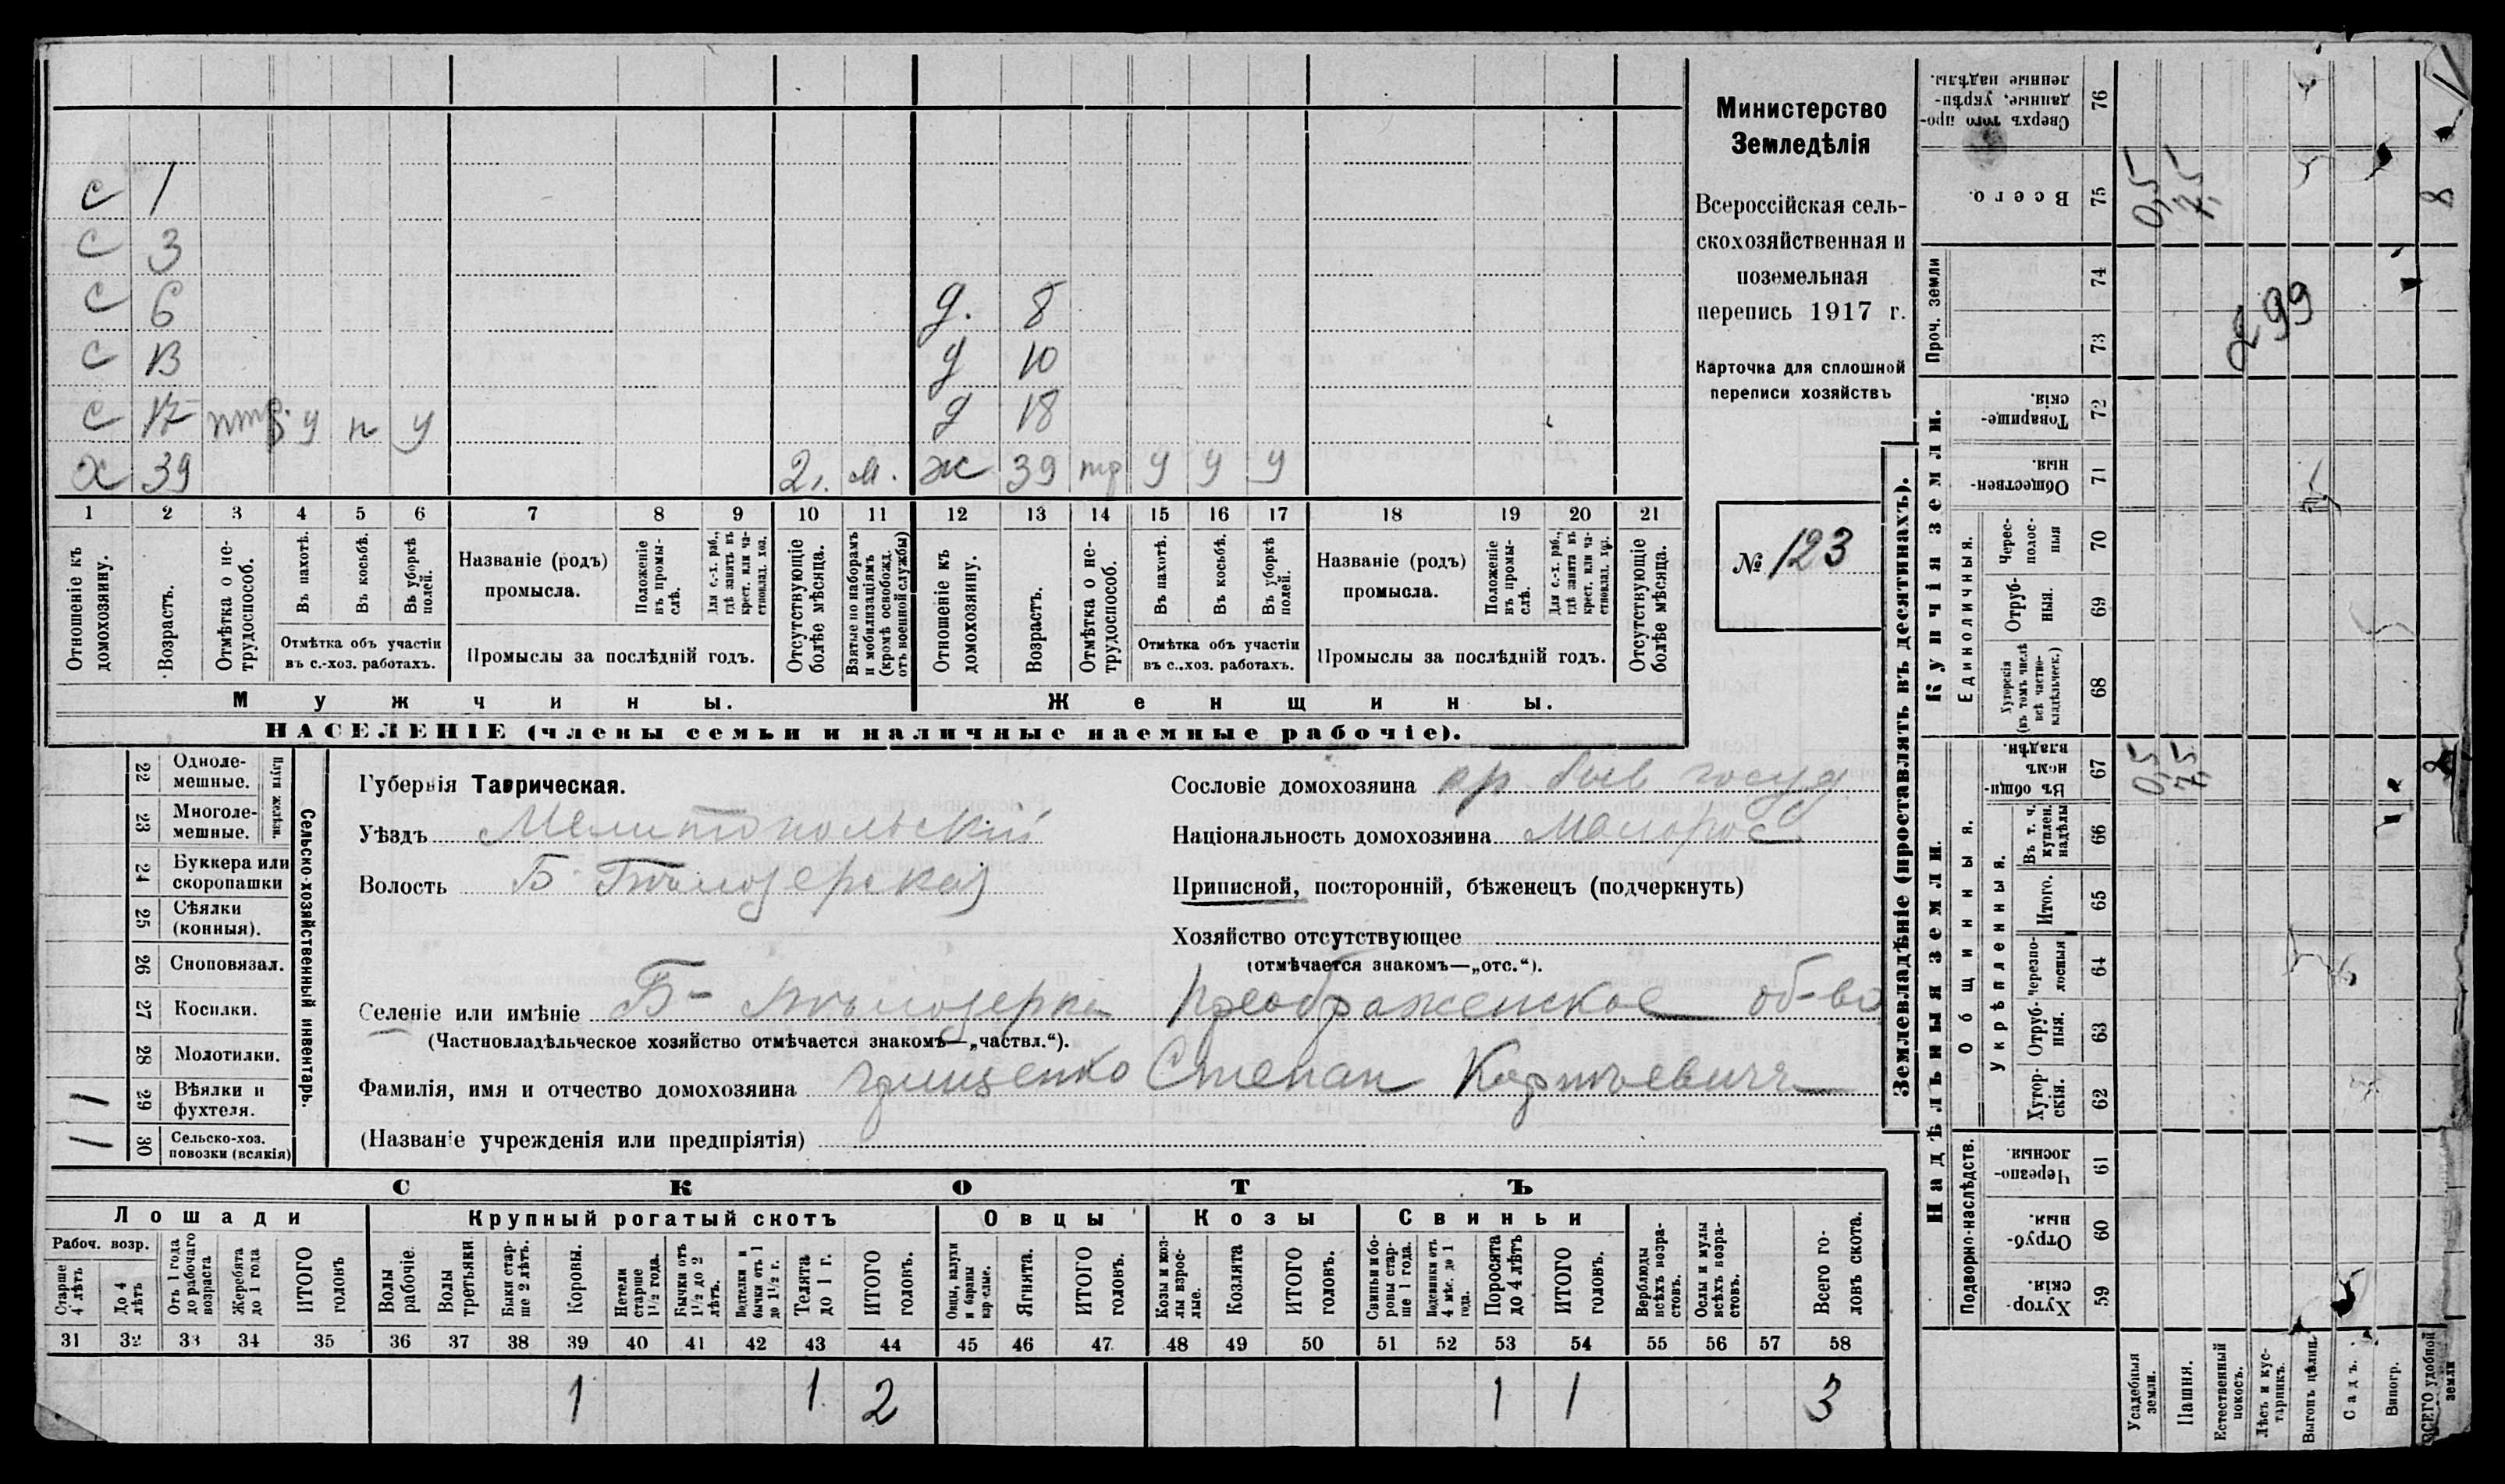 с 1
с 3
с 6 д. 8
с 13 д 10
с 17 птр. у п у д 18
х 39 2 г. м. ж 39 тр у у у
1 2 3 4 5 6 7 8 9 10 11 12 13 14 15 16 17 18 19 20 21
Отношеніе къ домохозяину.
Возрастъ.
Отмѣтка о не-трудоспособ.
Въ пахотѣ.
Въ косьбѣ.
Въ уборкѣ полей.
Отмѣтка объ участіи
въ с.-хоз. работахъ.
Названіе (родъ)
промысла.
Положеніе въ промы-слѣ.
Для с.-х. раб., гдѣ занятъ въ крест. или ча-стновлад. хоз.
Промыслы за послѣдній годъ.
Отсутствующіе болѣе мѣсяца.
Взятые по наборамъ и мобилизаціямъ (кромѣ освобожд. отъ военной службы)
Отношеніе къ домохозяину.
Возрастъ.
Отмѣтка о не-трудоспособ.
Въ пахотѣ.
Въ косьбѣ.
Въ уборкѣ полей.
Отмѣтка объ участіи
въ с.-хоз. работахъ.
Названіе (родъ)
промысла.
Положеніе въ промы-слѣ.
Для с.-х. раб., гдѣ занята въ крест. или ча-стновлад. хоз.
Промыслы за послѣдній годъ.
Отсутствующіе болѣе мѣсяца.
Мужчины.
Женщины.
НАСЕЛЕНІЕ (члены семьи и наличные наемные рабочіе).
Министерство
Земледѣлія
Всероссійская сель-
скохозяйственная и
поземельная
перепись 1917 г.
Карточка для сплошной
переписи хозяйствъ
№ 123
22 Одноле-мешные.
23 Многоле-мешные.
Плуги желѣзн.
24 Буккера или скоропашки
25 Сѣялки (конныя).
26 Сноповязал.
27 Косилки.
28 Молотилки.
1 29 Вѣялки и фухтеля.
1 30 Сельско-хоз. повозки (всякія)
Сельско-хозяйственный инвентарь.
Губернія Таврическая.
Уѣздъ Мелитопольскій
Волость Б. Бѣлозерская
Сословіе домохозяина кр. быв. госуд.
Національность домохозяина Малорос
Приписной, посторонній, бѣженецъ (подчеркнуть)
Хозяйство отсутствующее
(отмѣчается знакомъ—„отс.“).
Селеніе или имѣніе Б-Бѣлозерка Преображенское об-во
(Частновладѣльческое хозяйство отмѣчается знакомъ—„частвл.“).
Фамилія, имя и отчество домохозяина Грищенко Степан
(Названіе учрежденія или предпріятія)
СКОТЪ
Лошади
Крупный рогатый скотъ
Овцы
Козы
Свиньи
Рабоч. возр.
Старше 4 лѣтъ
До 4 лѣтъ
Отъ 1 года до рабочаго возраста
Жеребята до 1 года
ИТОГО головъ
Волы рабочіе.
Волы третьяки.
Быки стар-ше 2 лѣтъ.
Коровы.
Нетели старше 1½ года.
Бычки отъ 1½ до 2 лѣтъ.
Телки и бычки отъ 1 до 1½ г.
Телята до 1 г.
ИТОГО головъ.
Овцы, валухи и бараны взрослые.
Ягнята.
ИТОГО головъ.
Козы и коз-лы взрос-лые.
Козлята
ИТОГО головъ.
Свиньи и бо-ровы стар-ше 1 года.
Подсвинки отъ 4 мѣс. до 1 года.
Поросята до 4 лѣтъ
ИТОГО головъ.
Верблюды всѣхъ возра-стовъ.
Ослы и мулы всѣхъ возра-стовъ.
Всего го-ловъ скота.
31 32 33 34 35 36 37 38 39 40 41 42 43 44 45 46 47 48 49 50 51 52 53 54 55 56 57 58
1 1 2 1 1 3
Землевладѣніе (проставлять въ десятинахъ).
Купчія земли.
Надѣльныя земли.
Сверхъ того про-данные, укрѣп-ленные надѣлы. 76
Всего. 75 0,5 7,5 8
Проч. земли 74 73
299
Товарище-скія. 72
Обществен-ныя. 71
Единоличныя.
Черес-полос-ныя 70
Отруб-ныя. 69
Хуторскія (въ томъ числѣ всѣ частно-владѣльческ.) 68
Въ общи-номъ владѣн. 67 0,5 7,5
Общинныя.
Укрѣпленныя.
Въ т. ч. куплен. надѣлы 66
Итого. 65
Черезпо-лосныя 64
Отруб-ныя. 63
Хутор-скія. 62
Подворно-наслѣдств.
Черезпо-лосныя. 61
Отруб-ныя. 60
Хутор-скія. 59
Усадебныя земли.
Пашня.
Естественный покосъ.
Лѣсъ и кус-тарникъ.
Выгонъ цѣлин.
Садъ.
Виногр.
ВСЕГО удобной земли